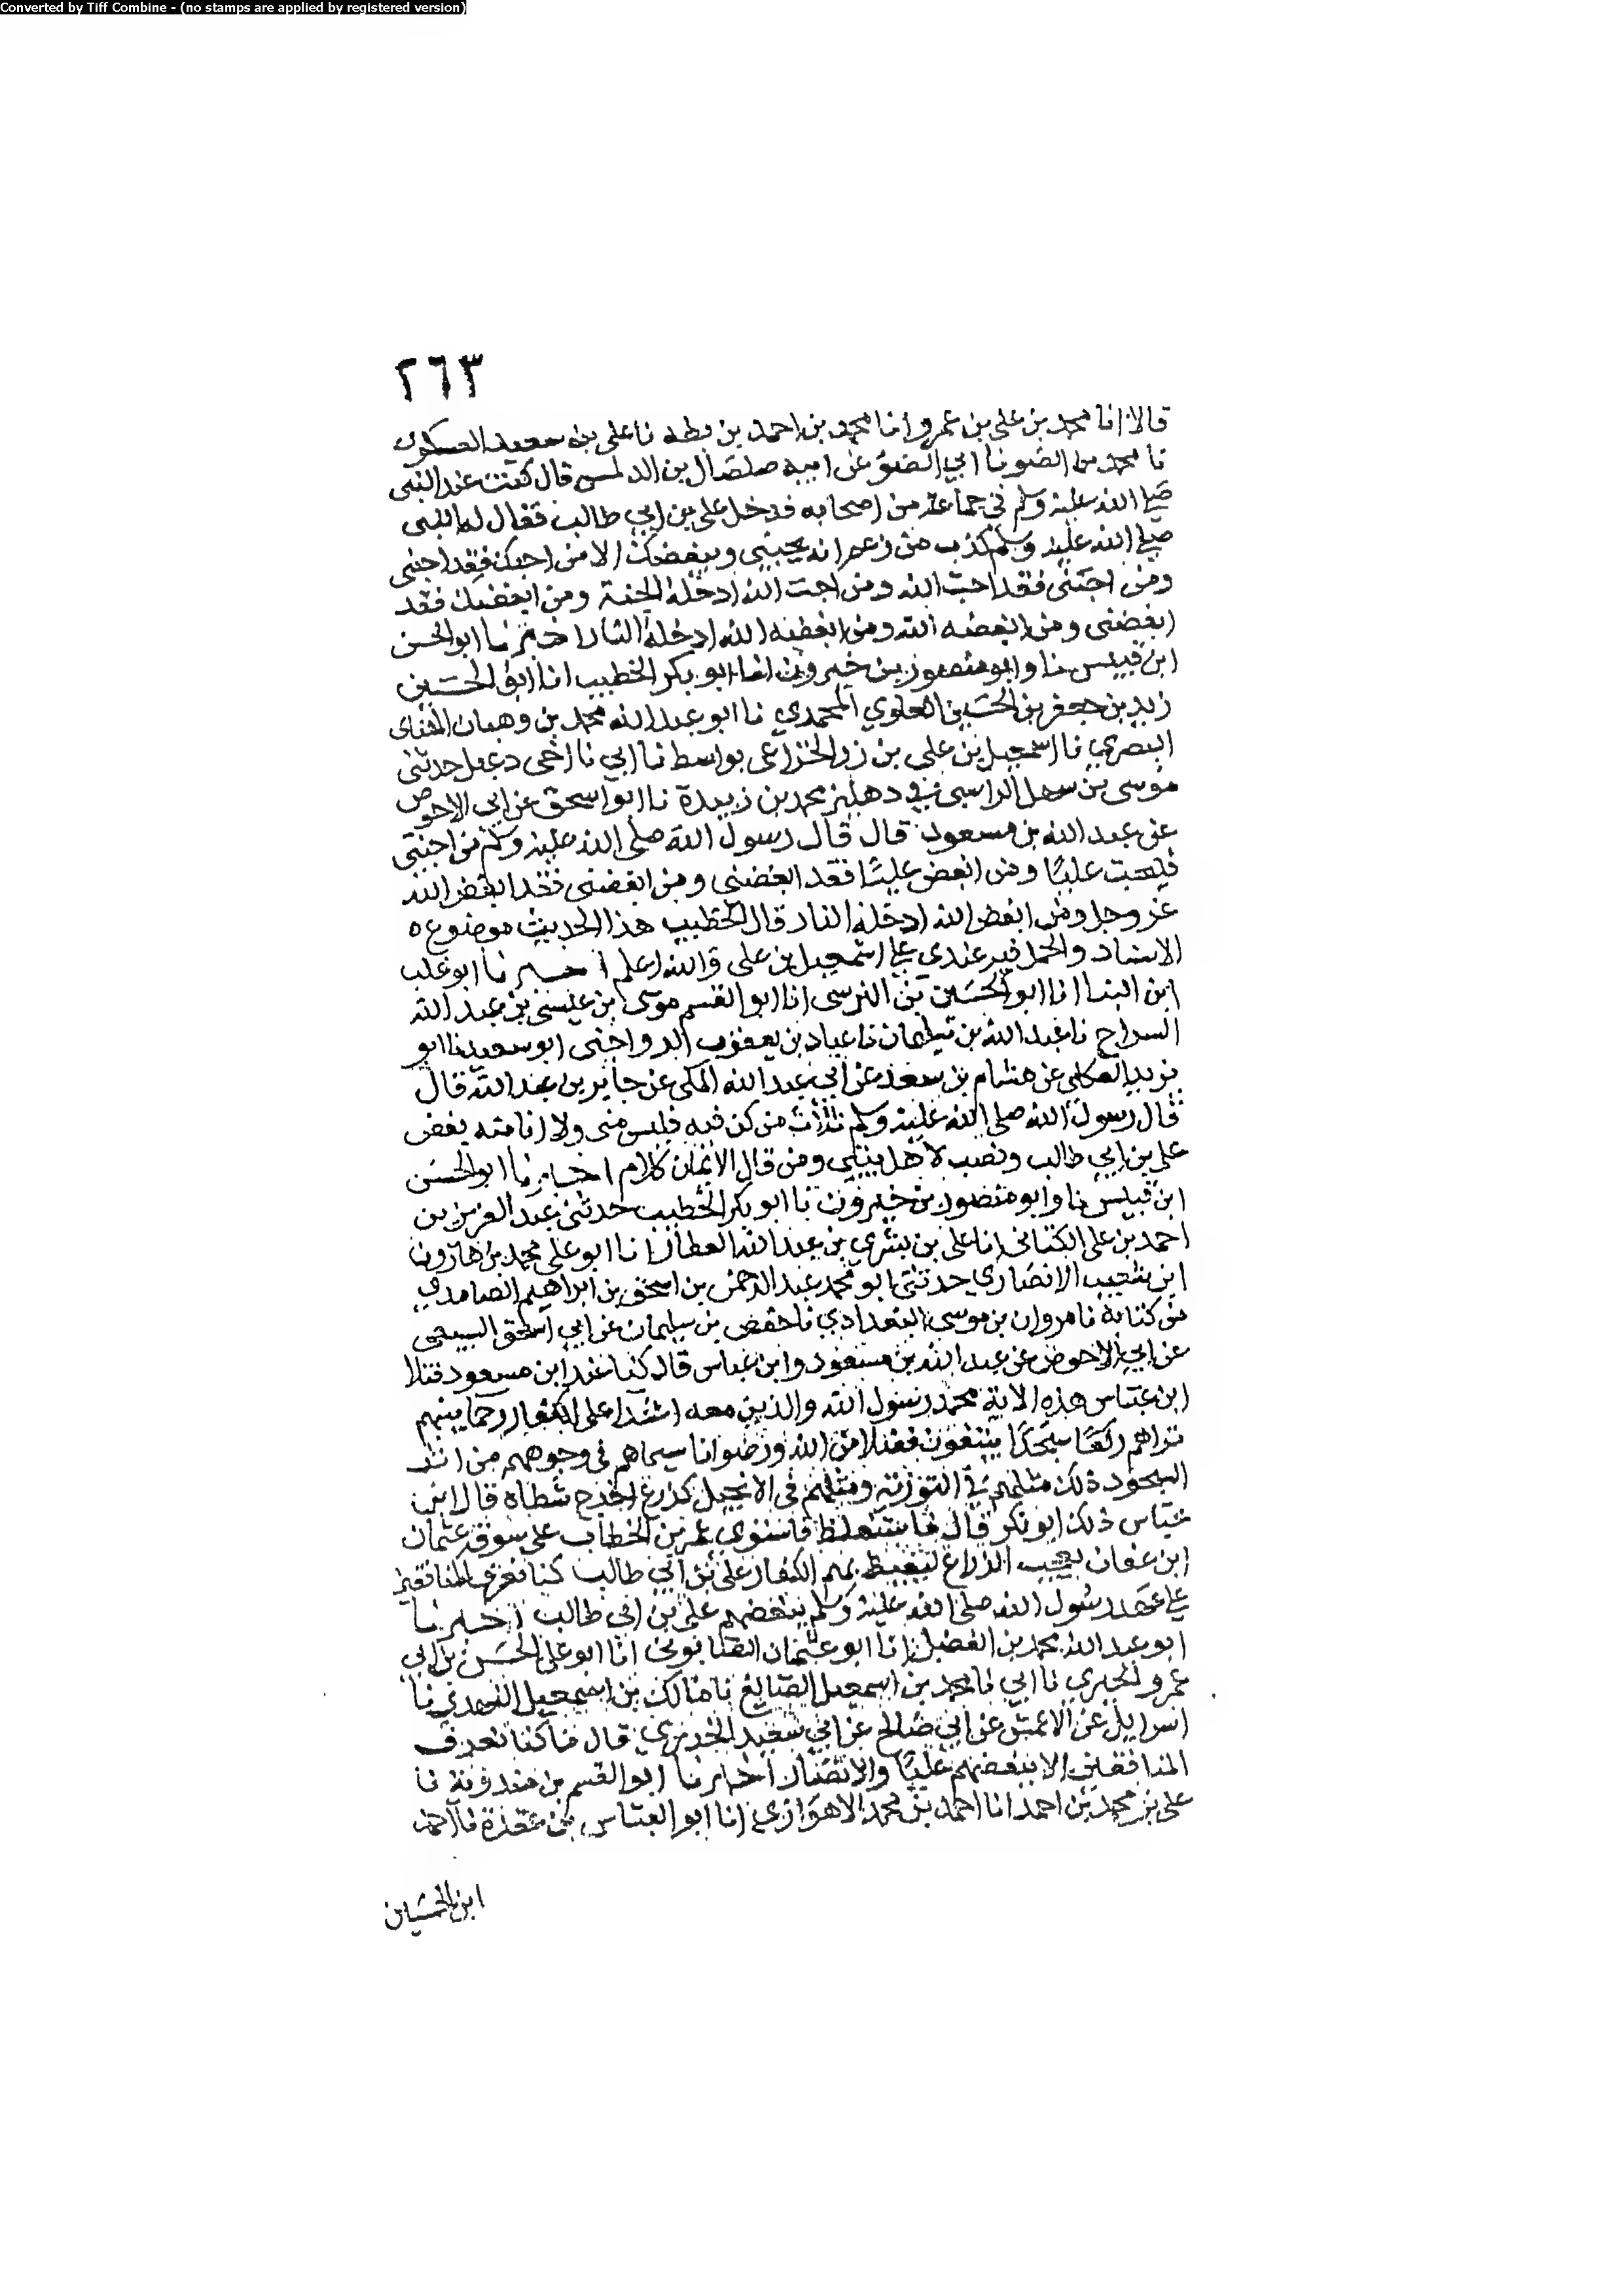 Converted by Tiff Combine - (no stamps are applied by registered version)
٢٦٣
قالا انا محمد بن على بن عمرو انا محمد بن احمد بن بطه نا على بن سعيد العسكرى
نا محمد بن الضو نا ابي الضو عن ابيه صلصال بن الدلمس قال كنت عند النبى
صلى الله عليه وسلم فى جماعة من اصحابه فدخل على بن ابي طالب فقال له النبى
صلى الله عليه وسلم كذب من زعم انه يحبنى ويبغضك الا من احبك فقد احبنى
ومن احبنى فقد احب الله ومن احب الله ادخله الجنة ومن ابغضك فقد
ابغضنى ومن ابغضه الله ومن ابغضه الله ادخله النار اخبرنا ابو الحسن
ابن قبيس نا وابو منصور بن خيرون انا ابو بكر الخطيب انا ابو الحسين
زيد بن جعفر بن الحسين العلوي المحمدي نا ابو عبد الله محمد بن وهبان الهنائى
البصري نا اسمعيل بن على بن زر الخزاعى بواسط نا ابي نا اخى دعبل حدثنى
موسى بن سهل الراسبى فى دهليز محمد بن زبيدة نا ابو اسحق عن ابي الاحوص
عن عبد الله بن مسعود قال قال رسول الله صلى الله عليه وسلم من احبنى
فليحب عليا ومن ابغض عليا فقد ابغضنى ومن ابغضنى فقد ابغض الله
عز وجل ومن ابغض الله ادخله النار قال الخطيب هذا الحديث موضوع ه
الاسناد والحمل فيه عندى على اسمعيل بن على والله اعلم اخبرنا ابو غلب
ابن البنا انا ابو الحسين بن النرسى انا ابو القسم موسى بن عيسى بن عبد الله
السراج نا عبد الله بن سليمان نا عباد بن يعقوب الدواجنى ابو سعيد نا ابو
يزيد العكلى عن هشام بن سعد عن ابي عبد الله المكى عن جابر بن عبد الله قال
قال رسول الله صلى الله عليه وسلم ثلاث من كن فيه فليس منى ولا انا منه بغض
على بن ابي طالب ونصب لاهل بيتى ومن قال الايمان كلام اخبرنا ابو الحسن
ابن قبيس نا وابو منصور بن خيرون نا ابو بكر الخطيب حدثنى عبد العزيز بن
احمد بن على الكتانى انا على بن بشري بن عبد الله العطار انا ابو على محمد بن هارون
ابن شعيب الانصاري حدثنى ابو محمد عبد الرحمن بن اسحق بن ابراهيم الصامدي
من كتابه نا مروان بن موسى البغدادي نا حفص بن سليمان عن ابي اسحق السبيعى
عن ابي الاحوص عن عبد الله بن مسعود وابن عباس قال كنا عند ابن مسعود فتلا
ابن عباس هذه الاية محمد رسول الله والذين معه اشدا على الكفار رحما بينهم
تراهم ركعا سجدا يبتغون فضلا من الله ورضوانا سيماهم فى وجوههم من اثر
السجود ذلك مثلهم في التورية ومثلهم فى الانجيل كزرع اخرج شطاه قال ابن
عباس ذلك ابو بكر قال فاستغلظ فاستوى عمر بن الخطاب على سوقه عثمان
ابن عفان يعجب الزراع ليغيظ بهم الكفار على بن ابي طالب كنا نعرف المنافقين
على عهد رسول الله صلى الله عليه وسلم ببغضهم على بن ابى طالب اخبرنا
ابو عبد الله محمد بن الفضل انا ابو عثمان الصابونى انا ابو على الحسن بن ابي
عمرو الحيري نا ابي نا محمد بن اسمعيل الصائغ نا مالك بن اسمعيل النهدي نا
اسرايل عن الاعمش عن ابي صالح عن ابي سعيد الخدري قال ما كنا نعرف
المنافقين الا ببغضهم عليا والانصار اخبرنا ابو القسم بن مندوية نا
على بن محمد بن احمد انا احمد بن محمد الاهوازي انا ابو العباس بن عقدة نا احمد
ابن الحسين